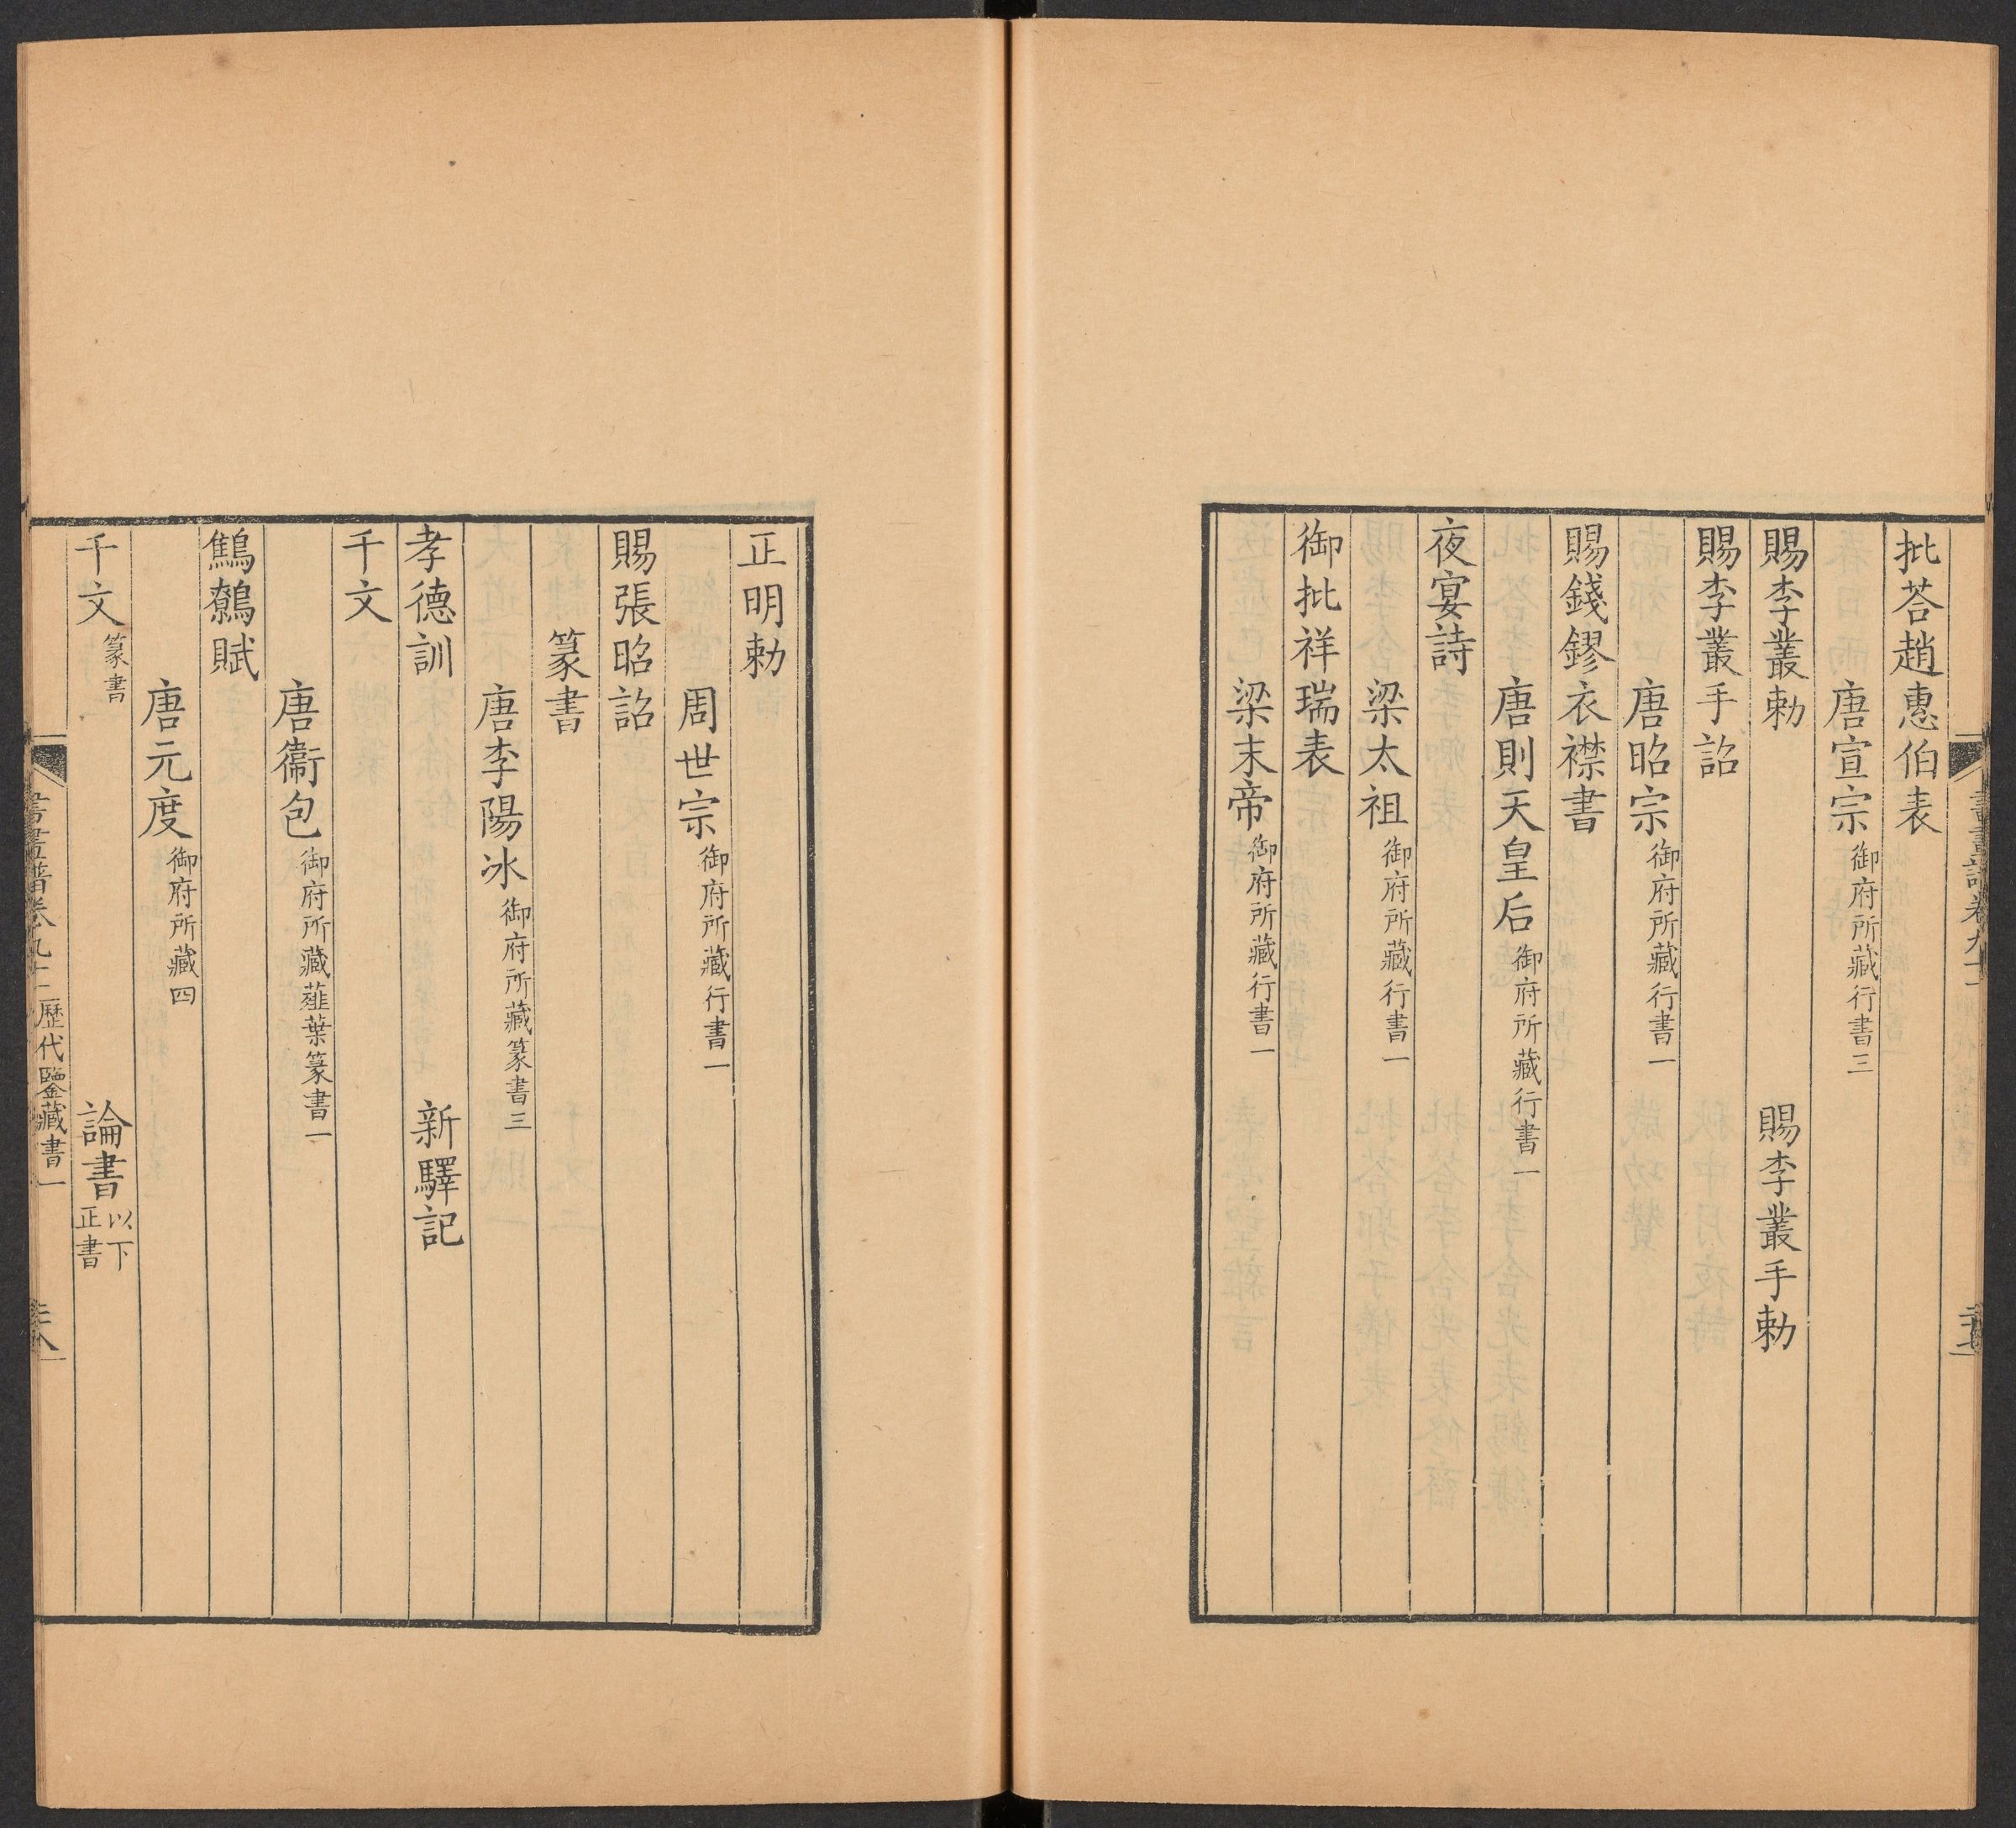 批荅趙惠伯表
唐宣宗御府所藏行書三
賜李叢勅 賜李叢手勅
賜李叢手詔
唐昭宗御府所藏行書一
賜錢鏐衣襟書
唐則天皇后御府所藏行書一
夜宴詩
梁太祖御府所藏行書一
御批祥瑞表
梁末帝御府所藏行書一
正明勅
周世宗御府所藏行書一
賜張昭詔
篆書
唐李陽冰御府所藏篆書三
孝德訓 新驛記
千文
唐衞包御府所藏薤葉篆書一
鷦鷯賦
唐元度御府所藏四
千文篆書 論書以下正書
書畫譜卷九十一 歷代鑒藏書一